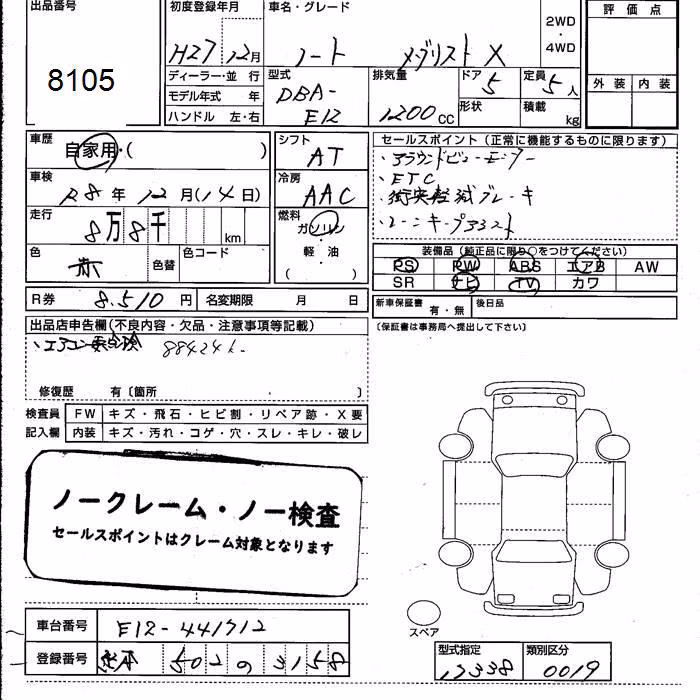 出品番号
8105
初度登録年月
H27 12月
車名・グレード
ノート メダリスト X
2WD
・
4WD
評価点
外装 内装
ディーラー・並行
モデル年式 年
ハンドル 左・右
型式
DBA-
E12
排気量
1200cc
ドア
5
形状
定員
5人
積載
kg
車歴
自家用・( )
車検
R8年 12月(14日)
走行
8万8千 km
色
赤
色替
色コード
シフト
AT
冷房
AAC
燃料
ガソリン
軽・油
( )
セールスポイント(正常に機能するものに限ります)
・アラウンドビューモニター
・ETC
・衝突軽減ブレーキ
・レーンキープアシスト
装備品(純正品に限り○をつけてください)
PS PW ABS エアB AW
SR ナビ TV カワ
R券 8,510円 名変期限 月 日
新車保証書 有・無 後日品
(保証書は事務局へ提出して下さい)
出品店申告欄(不良内容・欠品・注意事項等記載)
・エアコン 88424k
修復歴 有〔箇所 ・ 〕
検査員 FW キズ・飛石・ヒビ割・リペア跡・X要
記入欄 内装 キズ・汚れ・コゲ・穴・スレ・キレ・破レ
ノークレーム・ノー検査
セールスポイントはクレーム対象となります
スペア
車台番号 E12-441712
登録番号 熊本 502 の 3158
型式指定 類別区分
17338 0019